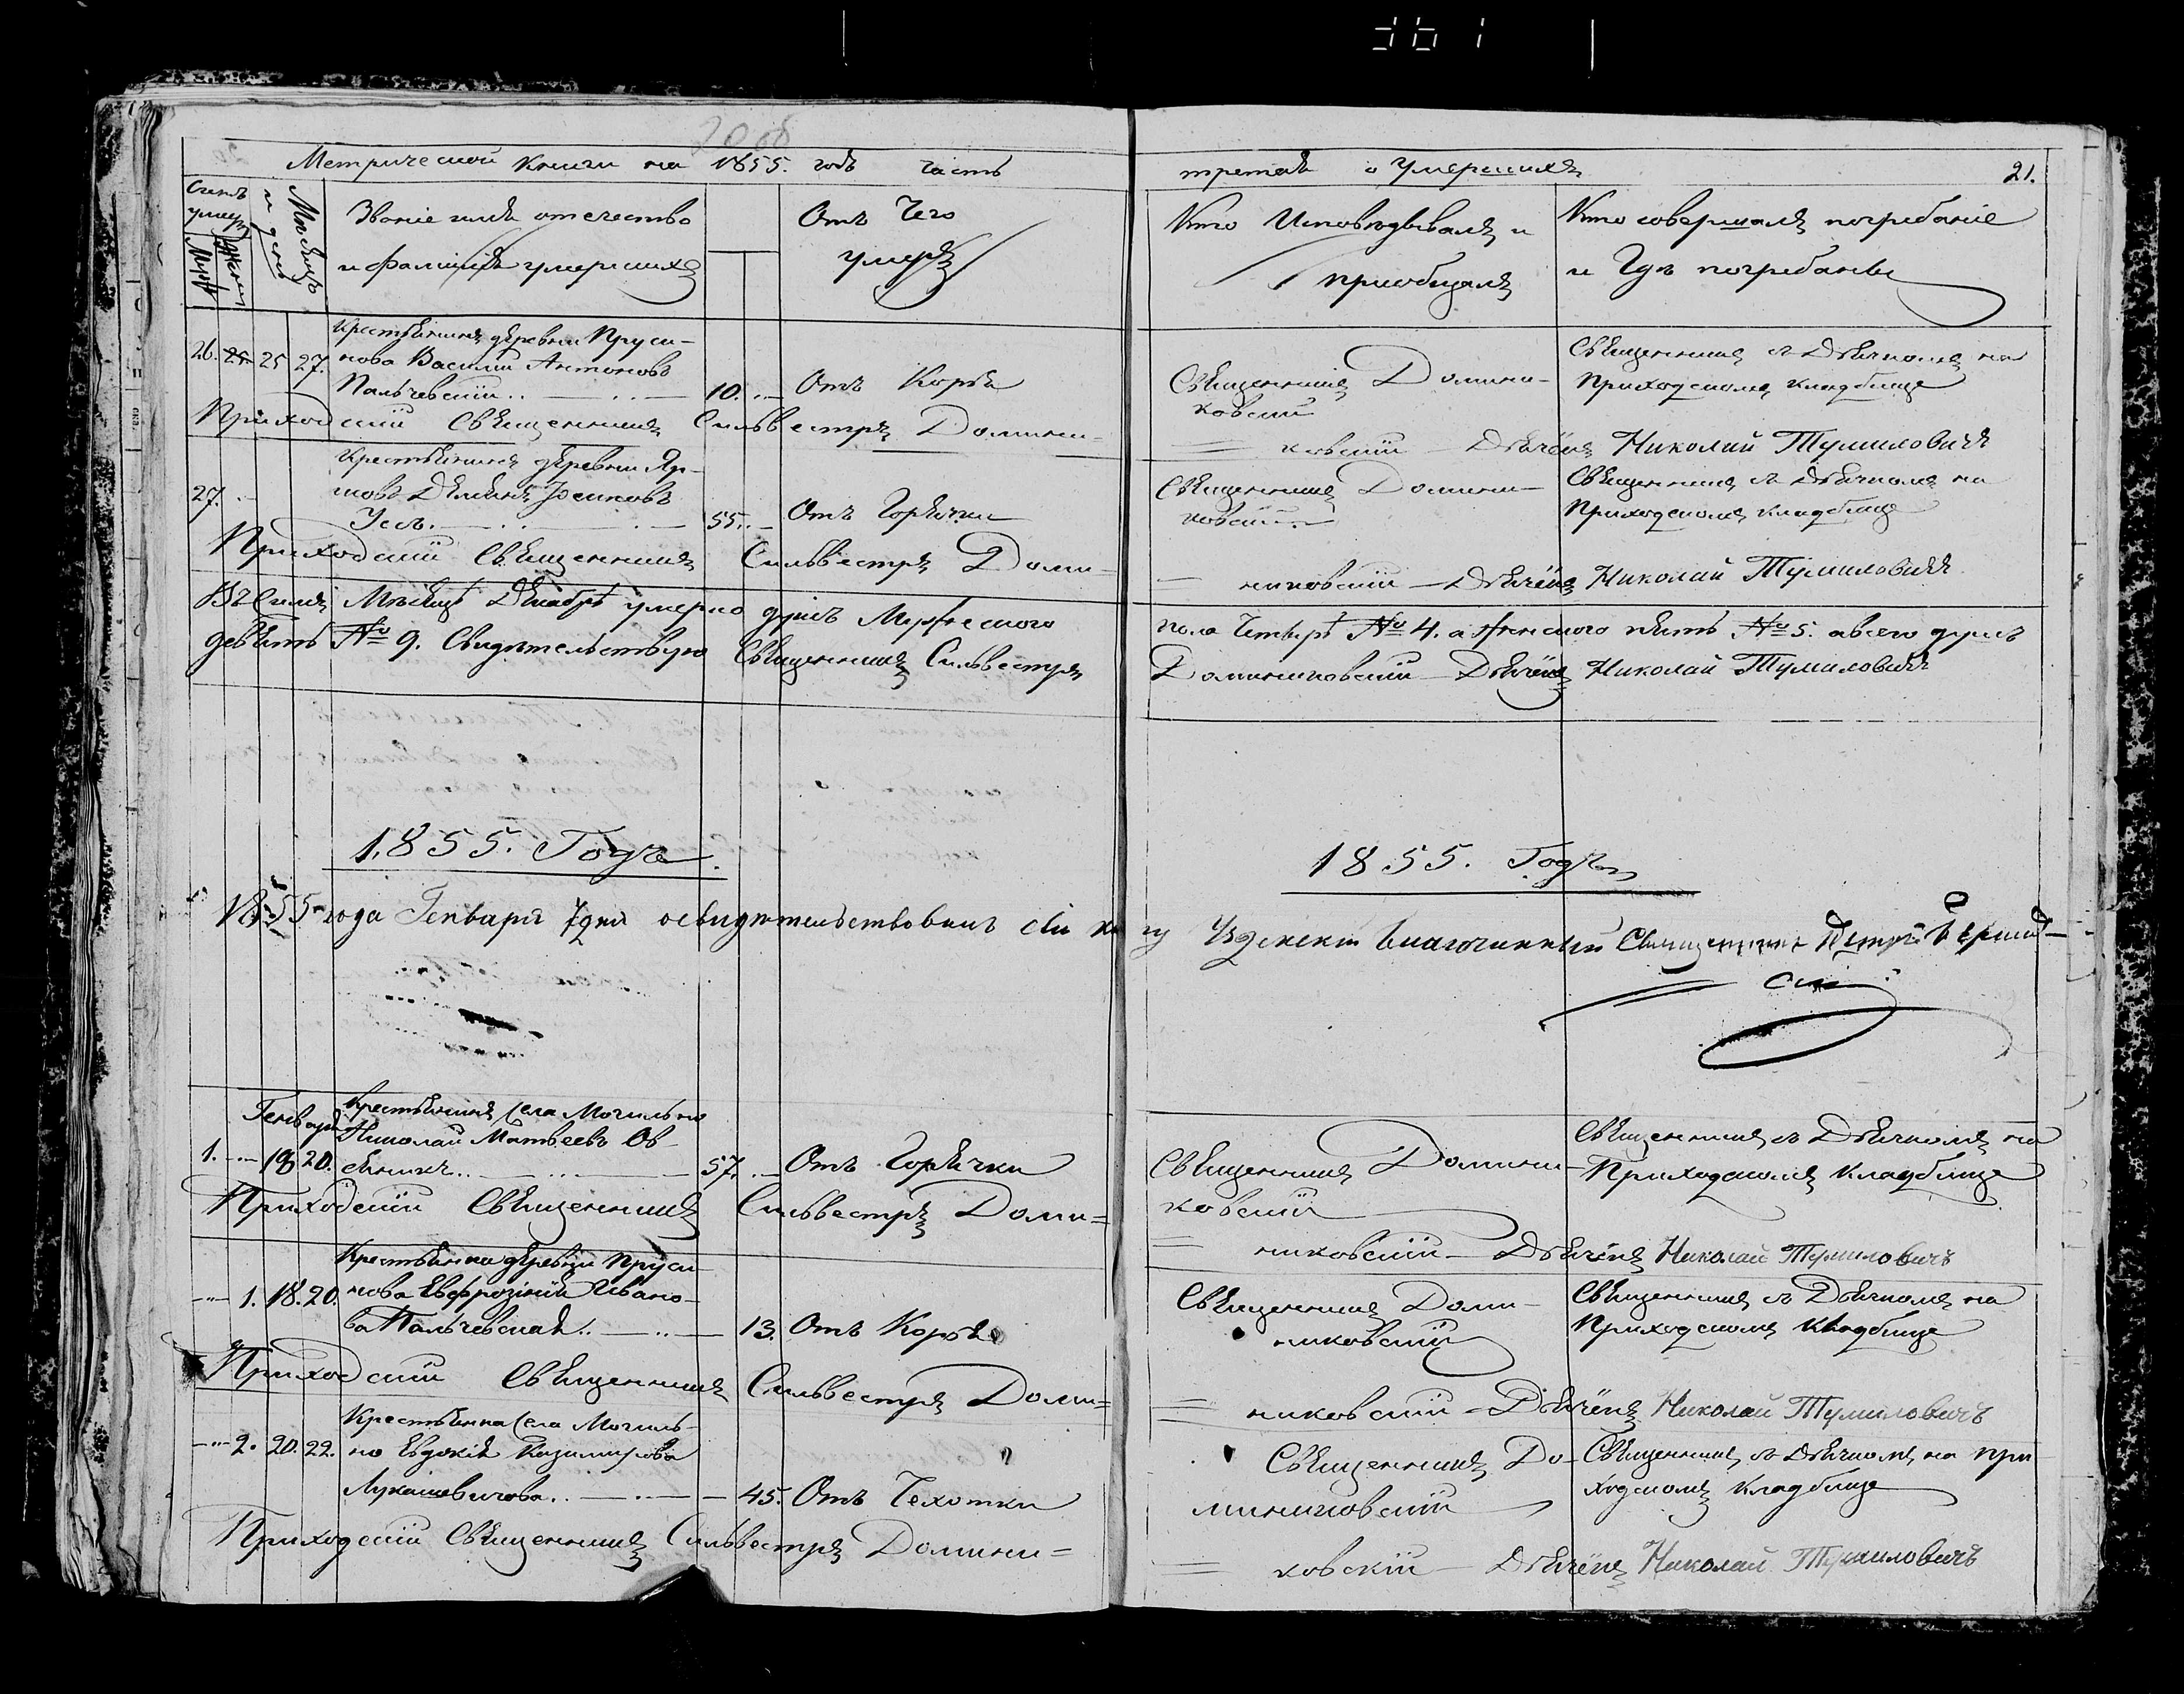 Метрической книги на 1855. годъ часть
третая о умершихъ 21.
Мѣсяцъ
и день
Званіе имя отечество
и фамилія умершихъ
Отъ Чего
умеръ
Кто Исповѣдывалъ и
пріобщалъ
Кто совершалъ погребаніе
и Гдѣ погребаны
26. 25 27.
Крестьянинъ деревни Пруси-
нова Василій Антоновъ
Пальчевскій 10. Отъ Коръя
Священникъ Домини-
ковскій
Священникъ съ Дьячкомъ на
Приходскомъ кладбище
Приходскій Священникъ Сильвестръ Домини=
ковскій Дьячёкъ Николай Тумиловичъ
27.
Крестьянинъ деревни
Демянъ Іосифовъ
Усъ 55. Отъ Горячки
Священникъ Домини-
ковскій
Священникъ съ Дьячкомъ на
Приходскомъ кладбище
Приходскій Священникъ Сильвестръ Доми-
никовскій Дьячёкъ Николай Тумиловичъ
Въ Семъ Мѣсяцѣ Декабрѣ умерло душъ Мужеского
пола Четыре № 4. а Женского пять № 5. а всего душъ
девять № 9. Свидѣтельствую Священникъ Сильвестръ
Доминиковскій Дьячёкъ Николай Тумиловичъ
1855. Годъ
1855. Годъ
1855 года Генваря 7 дня освидѣтельствовалъ сію книгу
Узденскій благочинный Священникъ Петръ
скій
Генварь
1. 18 20.
Крестьянинъ села Могильно
Николай Матвеевъ Ов-
сяникъ 57. Отъ Горячки
Священникъ Домини-
ковскій
Священникъ съ Дьячкомъ на
Приходскомъ кладбище
Приходскій Священникъ Сильвестръ Доми=
никовскій Дьячёкъ Николай Тумиловичъ
1. 18. 20.
Крестьянка деревни Пруси-
нова Евфрозінія Ивано-
ва Пальчевская 13. Отъ Коръя
Священникъ Доми-
никовскій
Священникъ съ Дьячкомъ на
Приходскомъ кладбище
Приходскій Священникъ Сильвестръ Доми=
никовскій Дьячёкъ Николай Тумиловичъ
2. 20. 22.
Крестьянка села Могиль-
но Евдокія Казимирова
Лукашевичова 45. Отъ Чехотки
Священникъ До-
миниковскій
Священникъ съ Дьячкомъ на При
ходскомъ кладбище
Приходскій Священникъ Сильвестръ Домини=
ковскій Дьячёкъ Николай Тумиловичъ